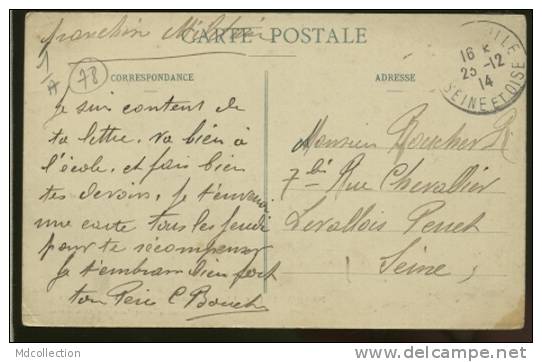 franchise Militaire
CARTE POSTALE
78
CORRESPONDANCE
ADRESSE
16
25-12
14
SEINE ET OISE
Je suis content de
ta lettre, va bien à
l'école, et fais bien
tes devoirs, je t'enverrai
une carte tous les jeudi
pour te récompenser
Je t'embrasse bien fort
ton Père C Bouch
Monsieur Boucher R
7 bis Rue Chevallier
Levallois Perret
(Seine)
MDcollection
www.delcampe.net